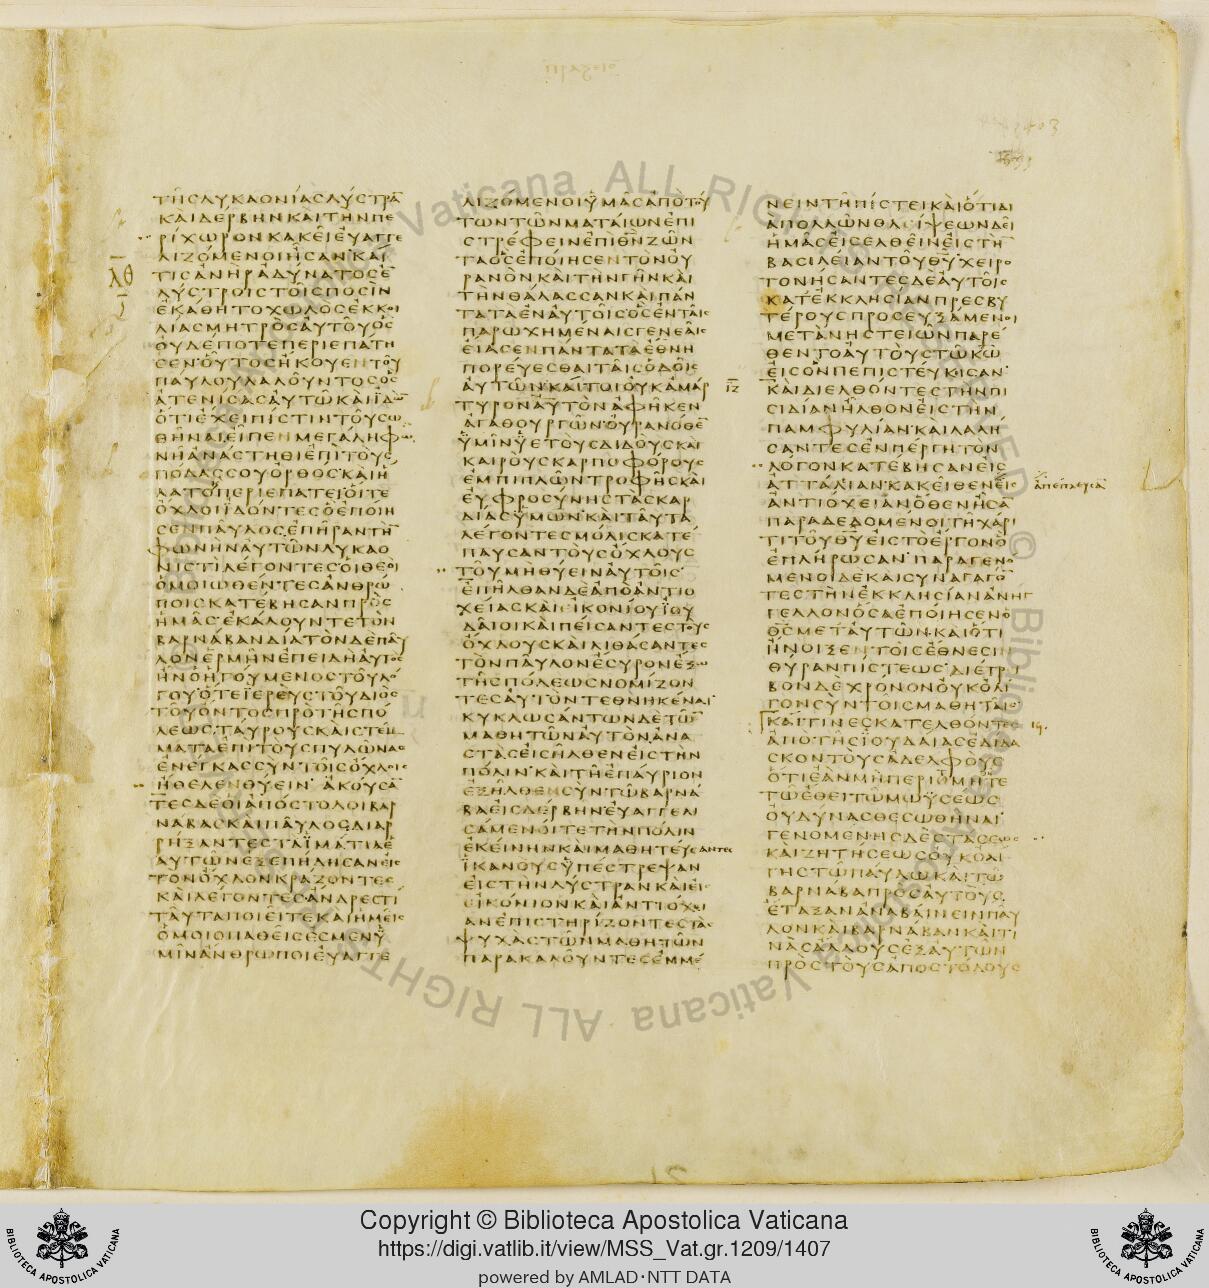 ΤΗΣΛΥΚΑΟΝΙΑΣΛΥΣΤΡΑ̅
ΚΑΙΔΕΡΒΗΝΚΑΙΤΗΝΠΕ
ΡΙΧΩΡΟΝΚΑΚΕΙΕΥΑΓΓΕ
ΛΙΖΟΜΕΝΟΙΗΣΑΝΚΑΙ
ΤΙΣΑΝΗΡΑΔΥΝΑΤΟΣΕ̅
ΛΥΣΤΡΟΙΣΤΟΙΣΠΟΣΙΝ
ΕΚΑΘΗΤΟΧΩΛΟΣΕΚΚΟΙ
ΛΙΑΣΜΗΤΡΟΣΑΥΤΟΥΟΣ
ΟΥΔΕΠΟΤΕΠΕΡΙΕΠΑΤΗ
ΣΕΝΟΥΤΟΣΗΚΟΥΕΝΤΟΥ
ΠΑΥΛΟΥΛΑΛΟΥΝΤΟΣΟΣ
ΑΤΕΝΙΣΑΣΑΥΤΩΚΑΙΪΔΩ̅
ΟΤΙΕΧΕΙΠΙΣΤΙΝΤΟΥΣΩ
ΘΗΝΑΙΕΙΠΕΝΜΕΓΑΛΗΦΩ
ΝΗΑΝΑΣΤΗΘΙΕΠΙΤΟΥΣ
ΠΟΔΑΣΣΟΥΟΡΘΟΣΚΑΙΗ
ΛΑΤΟΠΕΡΙΕΠΑΤΕΙΟΙΤΕ
ΟΧΛΟΙΪΔΟΝΤΕΣΟΕΠΟΙΗ
ΣΕΝΠΑΥΛΟΣΕΠΗΡΑΝΤΗ̅
ΦΩΝΗΝΑΥΤΩΝΛΥΚΑΟ
ΝΙΣΤΙΛΕΓΟΝΤΕΣΟΙΘΕΟΙ
ΟΜΟΙΩΘΕΝΤΕΣΑΝΘΡΩ
ΠΟΙΣΚΑΤΕΒΗΣΑΝΠΡΟΣ
ΗΜΑΣΕΚΑΛΟΥΝΤΕΤΟΝ
ΒΑΡΝΑΒΑΝΔΙΑΤΟΝΔΕΠΑΥ
ΛΟΝΕΡΜΗΝΕΠΕΙΔΗΑΥΤΟΣ
ΗΝΟΗΓΟΥΜΕΝΟΣΤΟΥΛΟ
ΓΟΥΟΤΕΪΕΡΕΥΣΤΟΥΔΙΟΣ
ΤΟΥΟΝΤΟΣΠΡΟΤΗΣΠΟ
ΛΕΩΣΤΑΥΡΟΥΣΚΑΙΣΤΕΜ
ΜΑΤΑΕΠΙΤΟΥΣΠΥΛΩΝΑΣ
ΕΝΕΓΚΑΣΣΥΝΤΟΙΣΟΧΛΟΙΣ
ΗΘΕΛΕΝΘΥΕΙΝ ΑΚΟΥΣΑ̅
ΤΕΣΔΕΟΙΑΠΟΣΤΟΛΟΙΒΑΡ
ΝΑΒΑΣΚΑΙΠΑΥΛΟΣΔΙΑΡ
ΡΗΞΑΝΤΕΣΤΑΪΜΑΤΙΑΕ
ΑΥΤΩΝΕΞΕΠΗΔΗΣΑΝΕΙΣ
ΤΟΝΟΧΛΟΝΚΡΑΖΟΝΤΕΣ
ΚΑΙΛΕΓΟΝΤΕΣΑΝΔΡΕΣΤΙ
ΤΑΥΤΑΠΟΙΕΙΤΕΚΑΙΗΜΕΙΣ
ΟΜΟΙΟΠΑΘΕΙΣΕΣΜΕΝΫ
ΜΙΝΑΝΘΡΩΠΟΙΕΥΑΓΓΕ
ΛΙΖΟΜΕΝΟΙΫΜΑΣΑΠΟΤΟΥ
ΤΩΝΤΩΝΜΑΤΑΙΩΝΕΠΙ
ΣΤΡΕΦΕΙΝΕΠΙΘ̅Ν̅ΖΩΝ
ΤΑΟΣΕΠΟΙΗΣΕΝΤΟΝΟΥ
ΡΑΝΟΝΚΑΙΤΗΝΓΗΝΚΑΙ
ΤΗΝΘΑΛΑΣΣΑΝΚΑΙΠΑΝ
ΤΑΤΑΕΝΑΥΤΟΙΣΟΣΕΝΤΑΙΣ
ΠΑΡΩΧΗΜΕΝΑΙΣΓΕΝΕΑΙΣ
ΕΙΑΣΕΝΠΑΝΤΑΤΑΕΘΝΗ
ΠΟΡΕΥΕΣΘΑΙΤΑΙΣΟΔΟΙΣ
ΑΥΤΩΝΚΑΙΤΟΙΟΥΚΑΜΑΡ
ΤΥΡΟΝΑΥΤΟΝΑΦΗΚΕΝ
ΑΓΑΘΟΥΡΓΩΝΟΥΡΑΝΟΘΕ̅
ΫΜΙΝΫΕΤΟΥΣΔΙΔΟΥΣΚΑΙ
ΚΑΙΡΟΥΣΚΑΡΠΟΦΟΡΟΥΣ
ΕΜΠΙΠΛΩΝΤΡΟΦΗΣΚΑΙ
ΕΥΦΡΟΣΥΝΗΣΤΑΣΚΑΡ
ΔΙΑΣΫΜΩΝΚΑΙΤΑΥΤΑ
ΛΕΓΟΝΤΕΣΜΟΛΙΣΚΑΤΕ
ΠΑΥΣΑΝΤΟΥΣΟΧΛΟΥΣ
ΤΟΥΜΗΘΥΕΙΝΑΥΤΟΙΣ
ΕΠΗΛΘΑΝΔΕΑΠΟΑΝΤΙΟ
ΧΕΙΑΣΚΑΙΕΙΚΟΝΙΟΥΪΟΥ
ΔΑΙΟΙΚΑΙΠΕΙΣΑΝΤΕΣΤΟΥΣ
ΟΧΛΟΥΣΚΑΙΛΙΘΑΣΑΝΤΕΣ
ΤΟΝΠΑΥΛΟΝΕΣΥΡΟΝΕΞΩ
ΤΗΣΠΟΛΕΩΣΝΟΜΙΖΟΝ
ΤΕΣΑΥΤΟΝΤΕΘΝΗΚΕΝΑΙ
ΚΥΚΛΩΣΑΝΤΩΝΔΕΤΩ̅
ΜΑΘΗΤΩΝΑΥΤΟΝΑΝΑ
ΣΤΑΣΕΙΣΗΛΘΕΝΕΙΣΤΗΝ
ΠΟΛΙΝΚΑΙΤΗΕΠΑΥΡΙΟΝ
ΕΞΗΛΘΕΝΣΥΝΤΩΒΑΡΝΑ
ΒΑΕΙΣΔΕΡΒΗΝΕΥΑΓΓΕΛΙ
ΣΑΜΕΝΟΙΤΕΤΗΝΠΟΛΙΝ
ΕΚΕΙΝΗΝΚΑΙΜΑΘΗΤΕΥΣΑΝΤΕΣ
ΪΚΑΝΟΥΣΫΠΕΣΤΡΕΨΑΝ
ΕΙΣΤΗΝΛΥΣΤΡΑΝΚΑΙΕΙΣ
ΕΙΚΟΝΙΟΝΚΑΙΑΝΤΙΟΧΕΙ
ΑΝΕΠΙΣΤΗΡΙΖΟΝΤΕΣΤΑΣ
ΨΥΧΑΣΤΩΝΜΑΘΗΤΩΝ
ΠΑΡΑΚΑΛΟΥΝΤΕΣΕΜΜΕ
ΝΕΙΝΤΗΠΙΣΤΕΙΚΑΙΟΤΙΔΙ
ΑΠΟΛΛΩΝΘΛΙΨΕΩΝΔΕΙ
ΗΜΑΣΕΙΣΕΛΘΕΙΝΕΙΣΤΗ
ΒΑΣΙΛΕΙΑΝΤΟΥΘ̅Υ̅ΧΕΙΡΟ
ΤΟΝΗΣΑΝΤΕΣΔΕΑΥΤΟΙΣ
ΚΑΤΕΚΚΛΗΣΙΑΝΠΡΕΣΒΥ
ΤΕΡΟΥΣΠΡΟΣΕΥΞΑΜΕΝΟΙ
ΜΕΤΑΝΗΣΤΕΙΩΝΠΑΡΕ
ΘΕΝΤΟΑΥΤΟΥΣΤΩΚ̅Ω̅
ΕΙΣΟΝΠΕΠΙΣΤΕΥΚΙΣΑΝ
ΚΑΙΔΙΕΛΘΟΝΤΕΣΤΗΝΠΙ
ΣΙΔΙΑΝΗΛΘΟΝΕΙΣΤΗΝ
ΠΑΜΦΥΛΙΑΝΚΑΙΛΑΛΗ
ΣΑΝΤΕΣΕΝΠΕΡΓΗΤΟΝ
ΛΟΓΟΝΚΑΤΕΒΗΣΑΝΕΙΣ
ΑΤΤΑΛΙΑΝΚΑΚΕΙΘΕΝΕΙΣ
ΑΝΤΙΟΧΕΙΑΝΟΘΕΝΗΣΑ̅
ΠΑΡΑΔΕΔΟΜΕΝΟΙΤΗΧΑΡΙ
ΤΙΤΟΥΘ̅Υ̅ΕΙΣΤΟΕΡΓΟΝΟ
ΕΠΛΗΡΩΣΑΝ ΠΑΡΑΓΕΝΟ
ΜΕΝΟΙΔΕΚΑΙΣΥΝΑΓΑΓΟ̅
ΤΕΣΤΗΝΕΚΚΛΗΣΙΑΝΑΝΗΓ
ΓΕΛΛΟΝΟΣΑΕΠΟΙΗΣΕΝΟ
Θ̅Σ̅ΜΕΤΑΥΤΩΝΚΑΙΟΤΙ
ΗΝΟΙΞΕΝΤΟΙΣΕΘΝΕΣΙΝ
ΘΥΡΑΝΠΙΣΤΕΩΣΔΙΕΤΡΙ
ΒΟΝΔΕΧΡΟΝΟΝΟΥΚΟΛΙ
ΓΟΝΣΥΝΤΟΙΣΜΑΘΗΤΑΙΣ
ΚΑΙΤΙΝΕΣΚΑΤΕΛΘΟΝΤΕΣ
ΑΠΟΤΗΣΪΟΥΔΑΙΑΣΕΔΙΔΑ
ΣΚΟΝΤΟΥΣΑΔΕΛΦΟΥΣ
ΟΤΙΕΑΝΜΗΠΕΡΙΤΜΗΤΕ
ΤΩΕΘΕΙΤΩΜΩΫΣΕΩΣ
ΟΥΔΥΝΑΣΘΕΣΩΘΗΝΑΙ
ΓΕΝΟΜΕΝΗΣΔΕΣΤΑΣΕΩΣ
ΚΑΙΖΗΤΗΣΕΩΣΟΥΚΟΛΙ
ΓΗΣΤΩΠΑΥΛΩΚΑΙΤΩ
ΒΑΡΝΑΒΑΠΡΟΣΑΥΤΟΥΣ
ΕΤΑΞΑΝΑΝΑΒΑΙΝΕΙΝΠΑΥ
ΛΟΝΚΑΙΒΑΡΝΑΒΑΝΚΑΙΤΙ
ΝΑΣΑΛΛΟΥΣΕΞΑΥΤΩΝ
ΠΡΟΣΤΟΥΣΑΠΟΣΤΟΛΟΥΣ
ΛΘ
ΙΖ
ἀπέπλευσα̅
Copyright © Biblioteca Apostolica Vaticana
https://digi.vatlib.it/view/MSS_Vat.gr.1209/1407
powered by AMLAD·NTT DATA
BIBLIOTECA APOSTOLICA VATICANA
BIBLIOTECA APOSTOLICA VATICANA